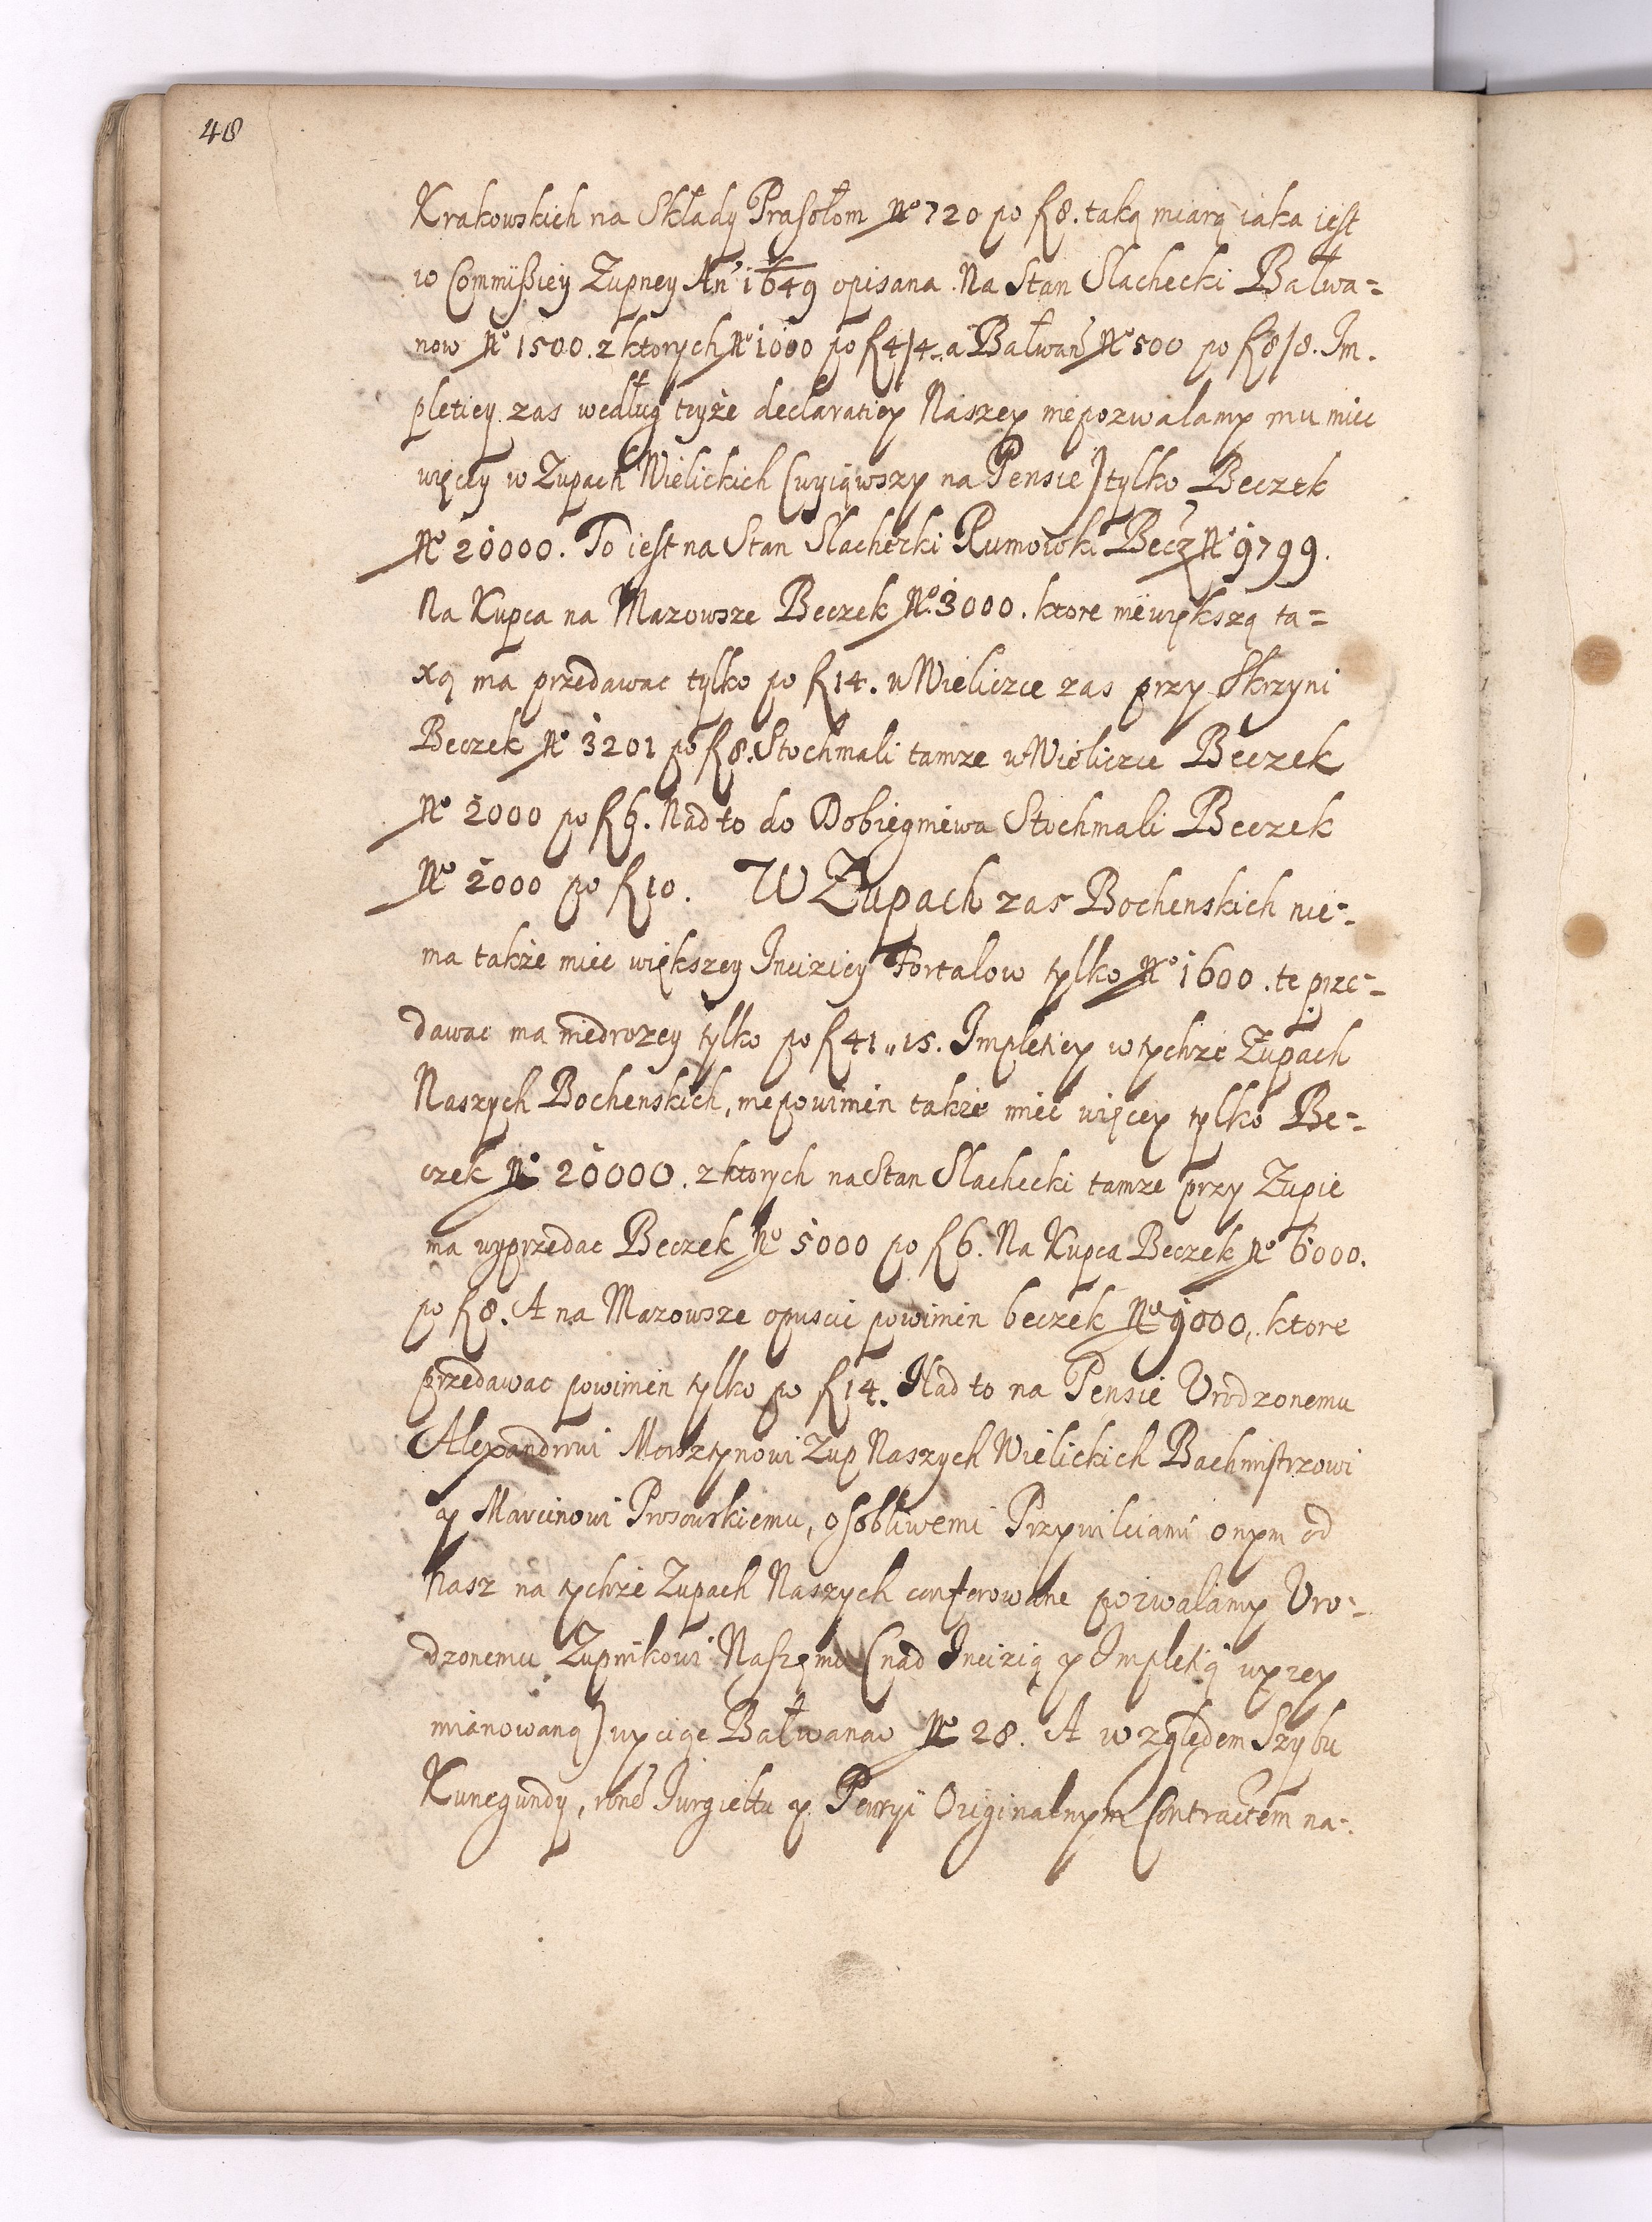 48
Krakowskich na Składy Prasołom No 720 po f 8. taką miarą iaka iest
w Commißiey Zupney An° 1649 opisana. Na Stan Slachecki Bałwa=
now No 1500. z ktorych No 1000 po f 4/4. a Bałwan No 500 po f 8/8. Im-
pletiey zas według teyże declaratiey Naszey niepozwalamy mu miec
więcey w Zupach Wielickich (wyiąwszy na Pensie) tylko Beczek
No 20000. To iest na Stan Slachecki Rumowski Becz No 9799.
Na Kupca na Mazowsze Beczek No 3000. ktore niewiększą ta=
xą ma przedawac tylko po f 14. w Wieliczce zas przy Skrzyni
Beczek No 3201 po f 8. Stochmali tamze w Wieliczce Beczek
No 2000 po f 6. Nad to do Dobiegniewa Stochmali Beczek
No 2000 po f 10. W Zupach zas Bochenskich nie-
ma także miec większey Inciziey Fortalow tylko No 1600. te prze-
dawac ma niedrozey tylko po f 41 „ 15. Impletiey w tychże Zupach
Naszych Bochenskich, niepowinien także miec więcey tylko Be-
czek No 20000. z ktorych na Stan Slachecki tamze przy Zupie
ma wyprzedac Beczek No 5000 po f 6. Na Kupca Beczek No 6000.
po f 8. A na Mazowsze opuscic powinien beczek No 9000, ktore
przedawac powinien tylko po f 14. Nad to na Pensie Vrodzonemu
Alexandrowi Morsztynowi Zup Naszych Wielickich Bachmistrzowi
y Marcinowi Prosowskiemu, osobliwemi Przywileiami onym od
nasz na tychże Zupach Naszych conferowane pozwalamy Vro-
dzonemu Zupnikowi Naszemu (nad Incizią y Impletią wyzey
mianowaną) wyciąc Bałwanow No 28. A względem Szybu
Kunegundy, Jurgieltu y Originalnym Contractem na-